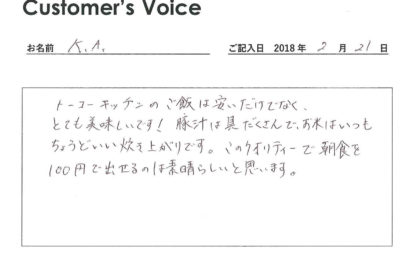 Customer's Voice
お名前 K.A. ご記入日 2018年2月21日
トーコーキッチンのご飯は安いだけでなく、
とても美味しいです！豚汁は具だくさんで、お米はいつも
ちょうどいい炊き上がりです。このクオリティーで朝食を
100円で出せるのは素晴らしいと思います。